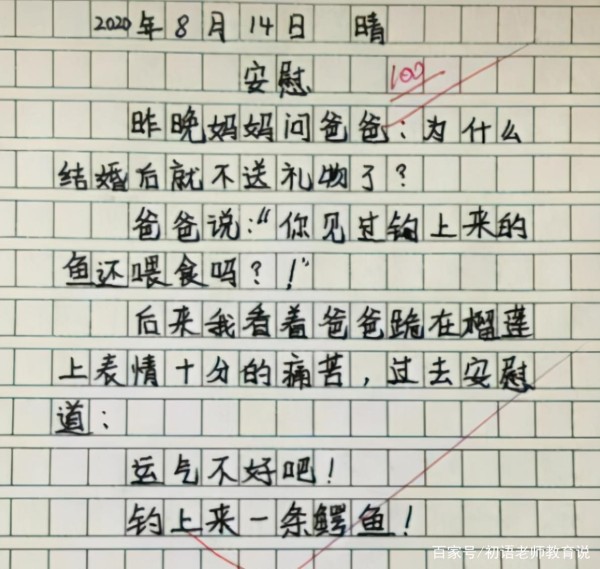 2020年8月14日 晴
安慰 100
昨晚妈妈问爸爸:为什么
结婚后就不送礼物了?
爸爸说:“你见过钓上来的
鱼还喂食吗?!”
后来我看着爸爸跪在榴莲
上表情十分的痛苦,过去安慰
道:
运气不好吧!
钓上来一条鳄鱼!
百家号/初语老师教育说